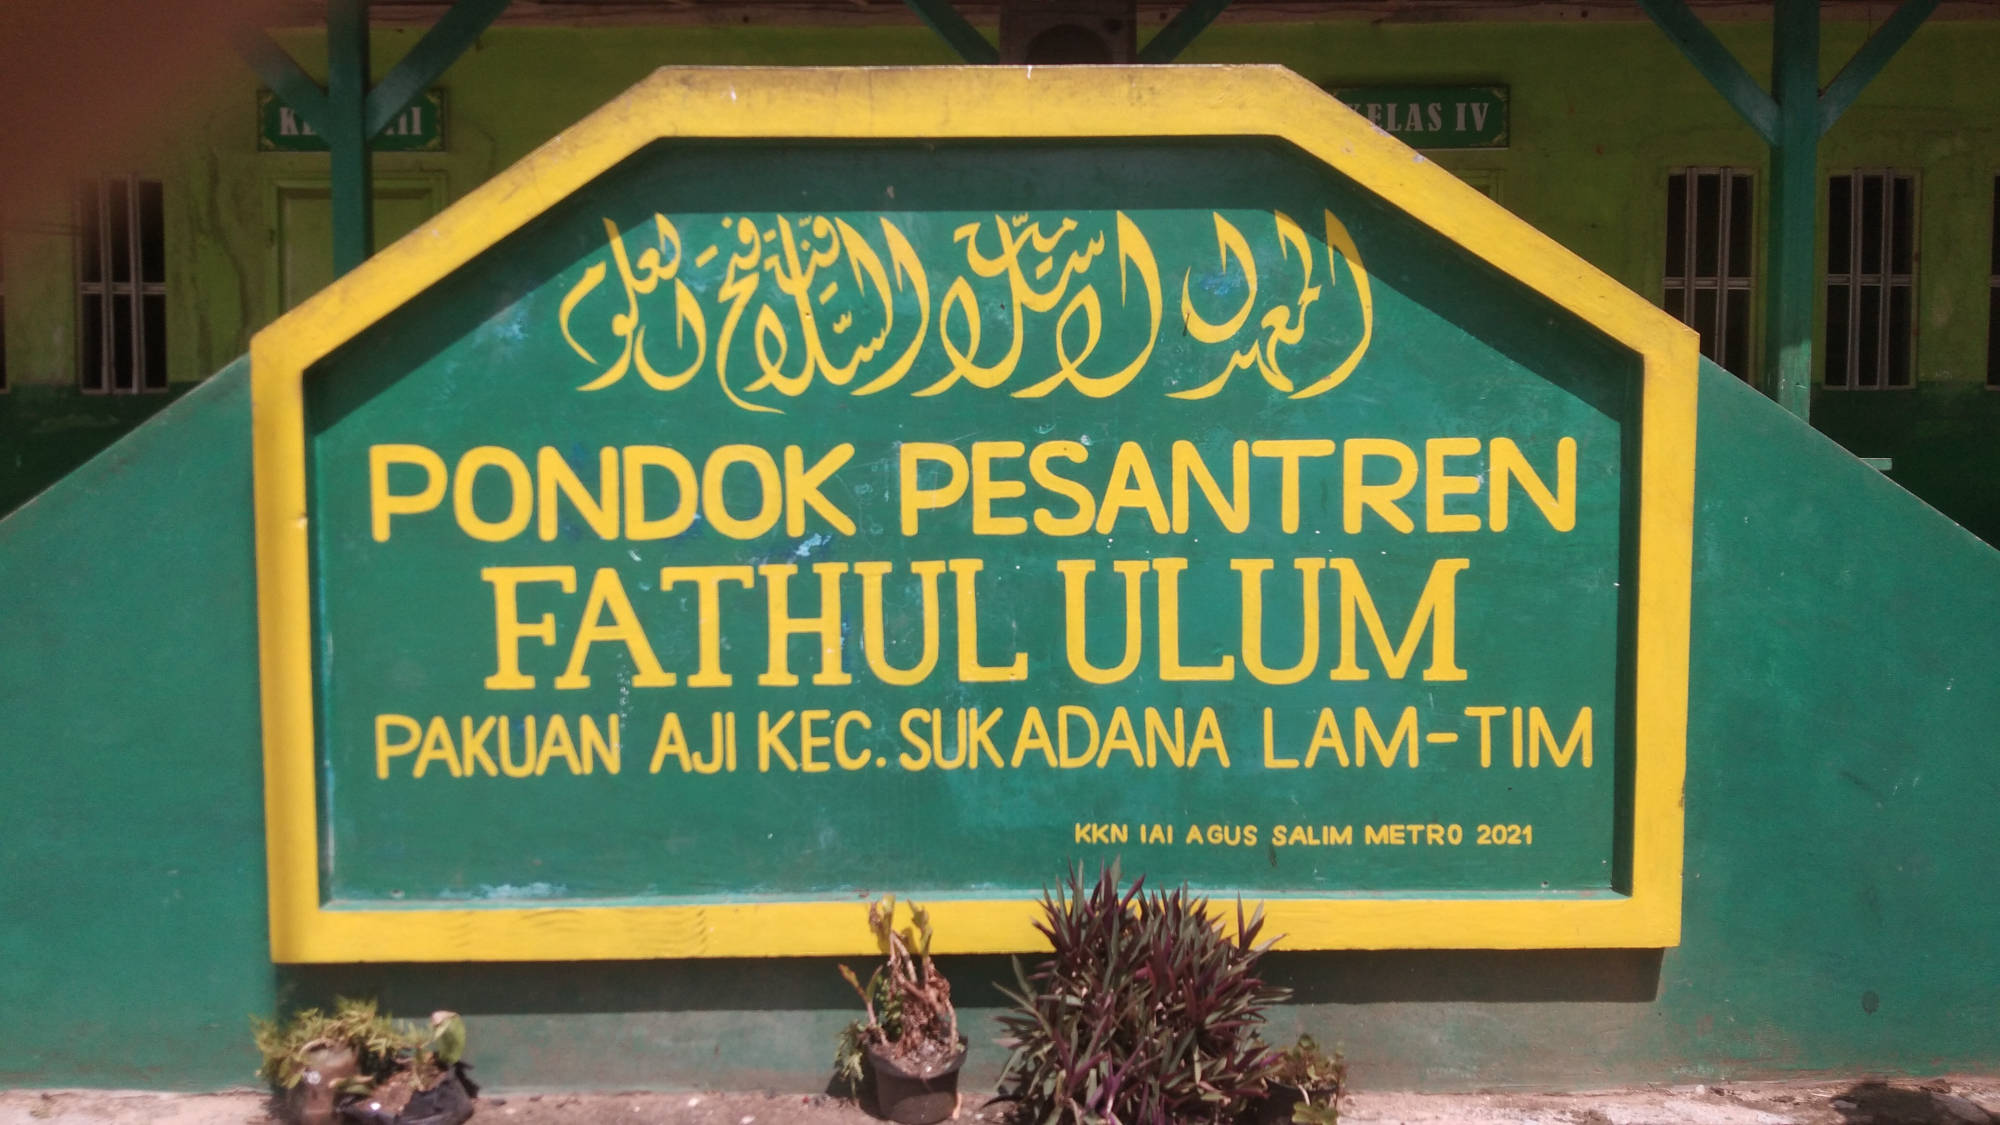 KELAS IV
المعهد الاسلامي السلفية فتح العلوم
PONDOK PESANTREN
FATHUL ULUM
PAKUAN AJI KEC. SUKADANA LAM-TIM
KKN IAI AGUS SALIM METRO 2021